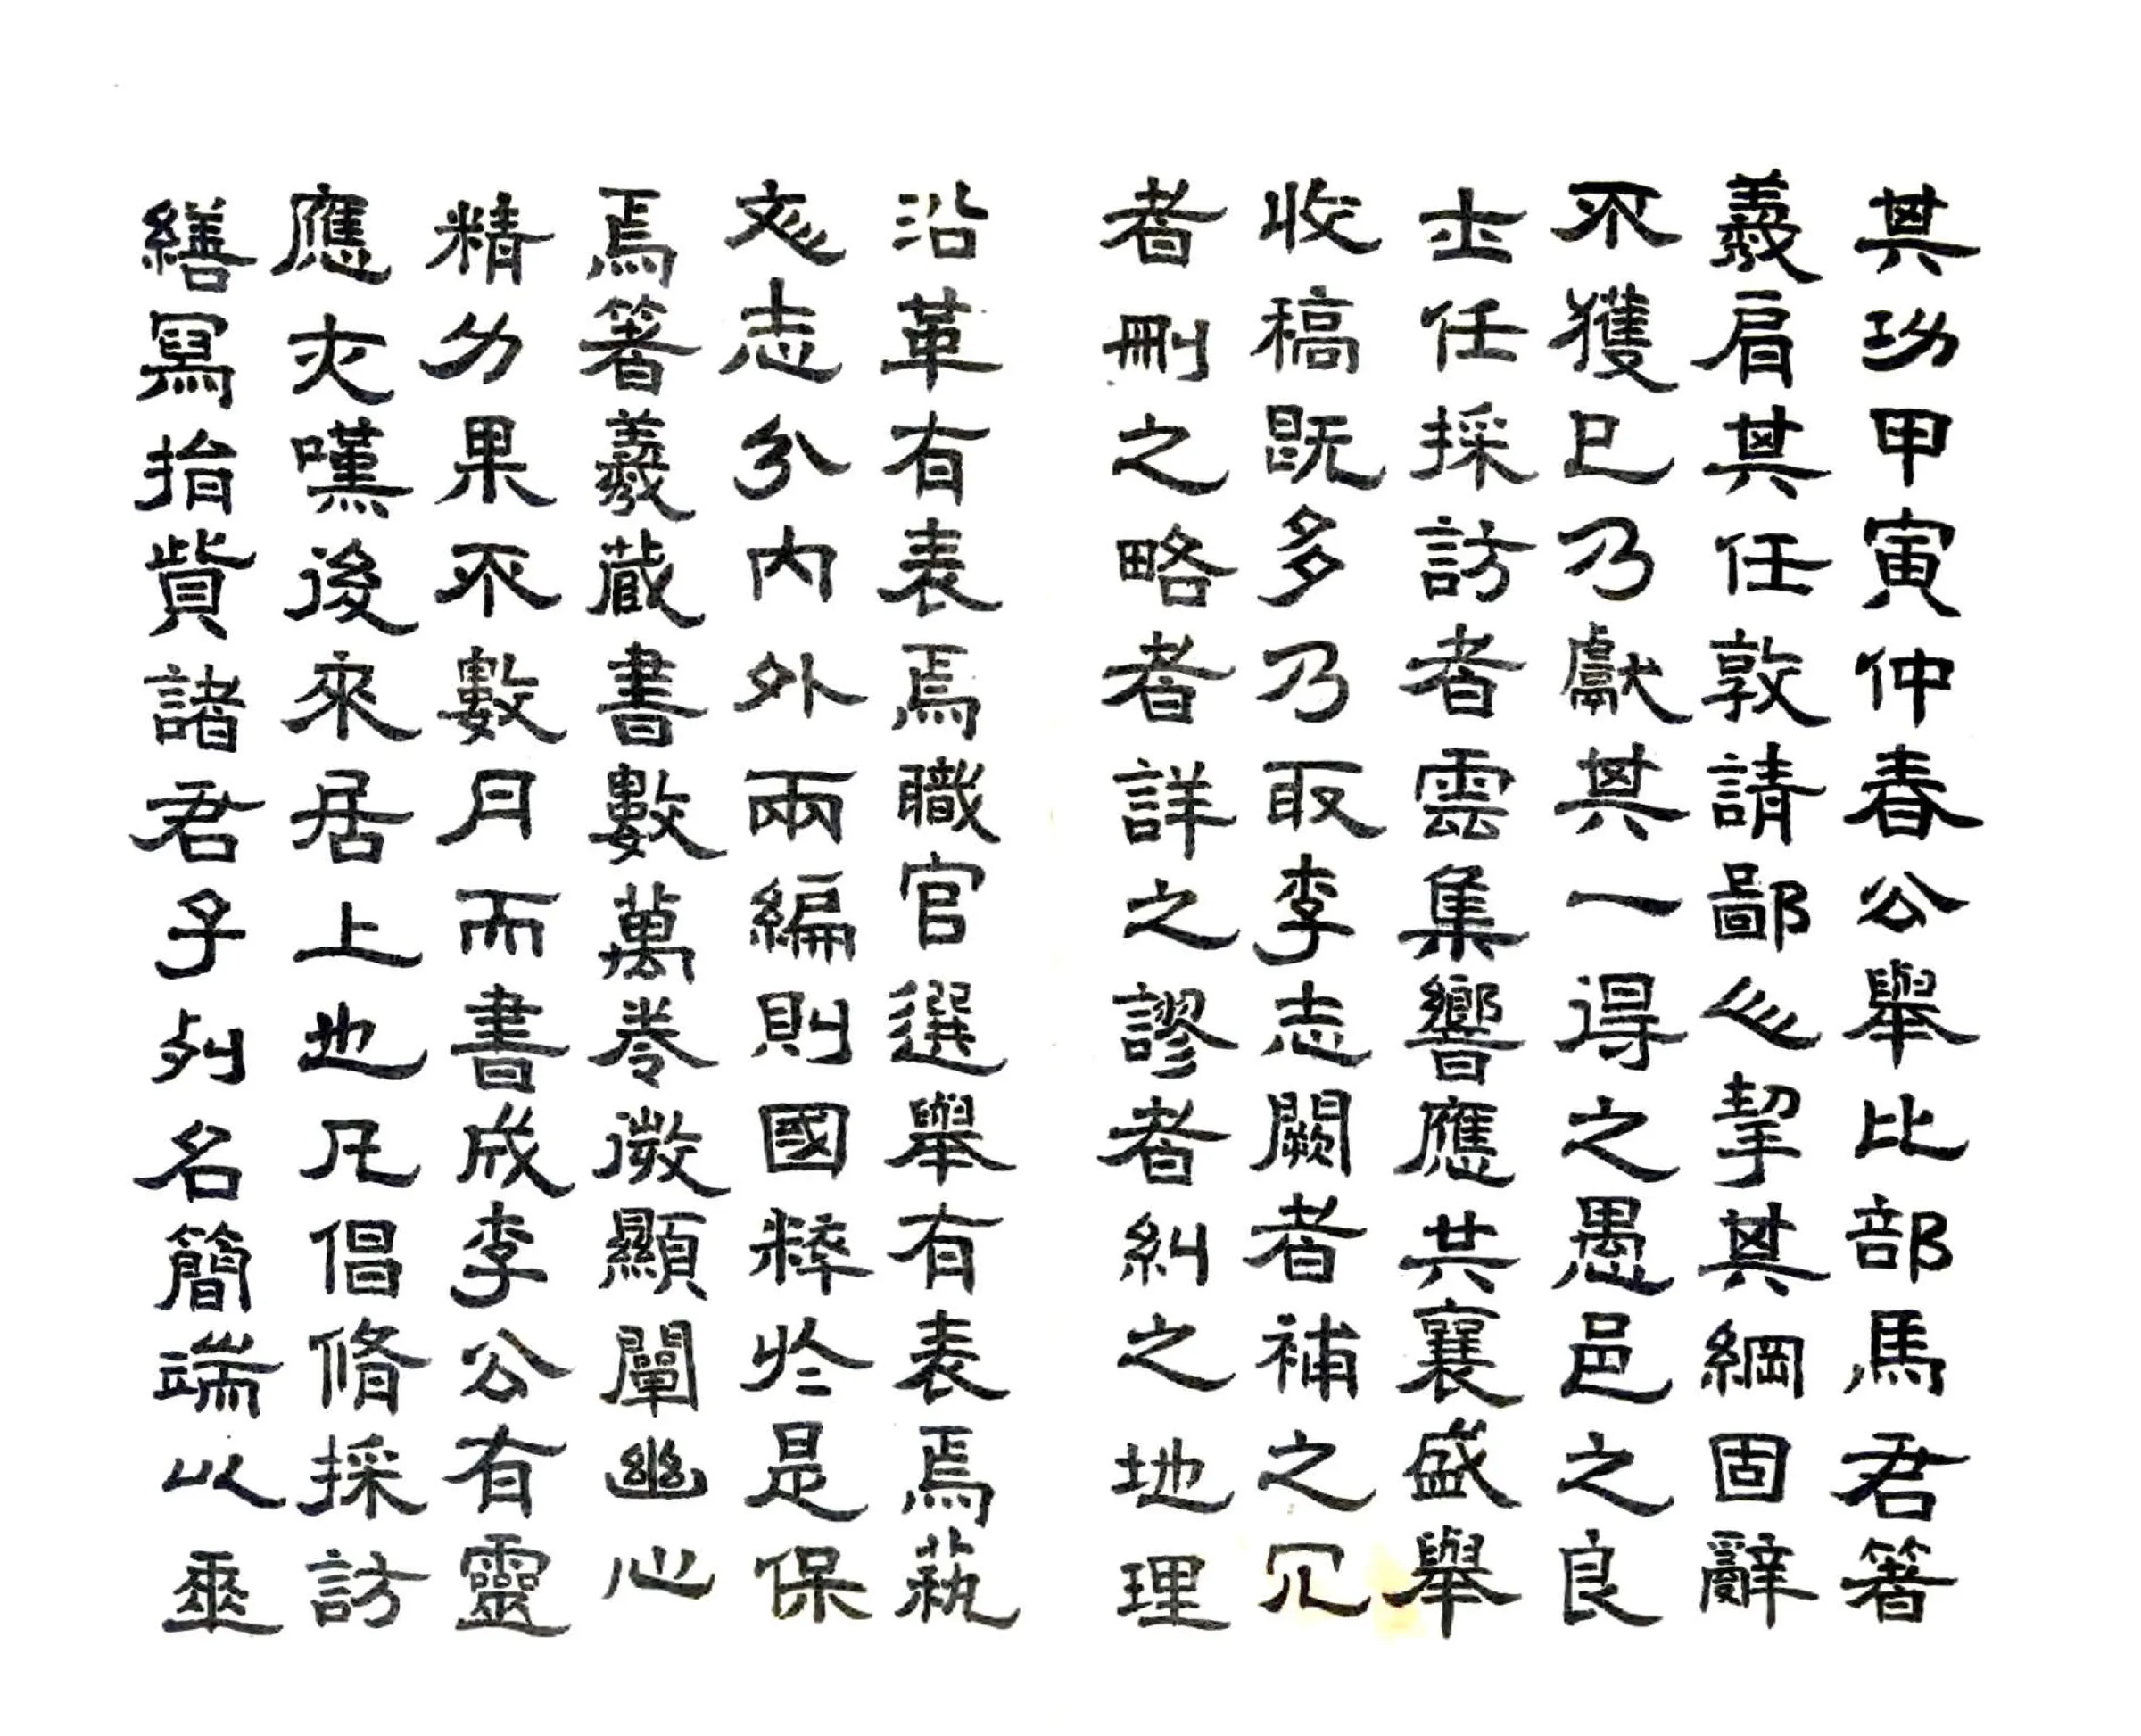 其功甲寅仲春公舉比部馬君箸
羲肩其任敦請鄙人挈其綱固辭
不獲已乃獻其一得之愚邑之良
士任採訪者雲集響應共襄盛舉
收稿既多乃取李志闕者補之冗
者刪之略者詳之謬者糾之地理
沿革有表焉職官選舉有表焉蓺
文志分內外兩編則國粹於是保
焉箸羲藏書數萬卷微顯闡幽心
精力果不數月而書成李公有靈
應大嘆後來居上也凡倡脩採訪
繕寫捐貲諸君子列名簡端以垂